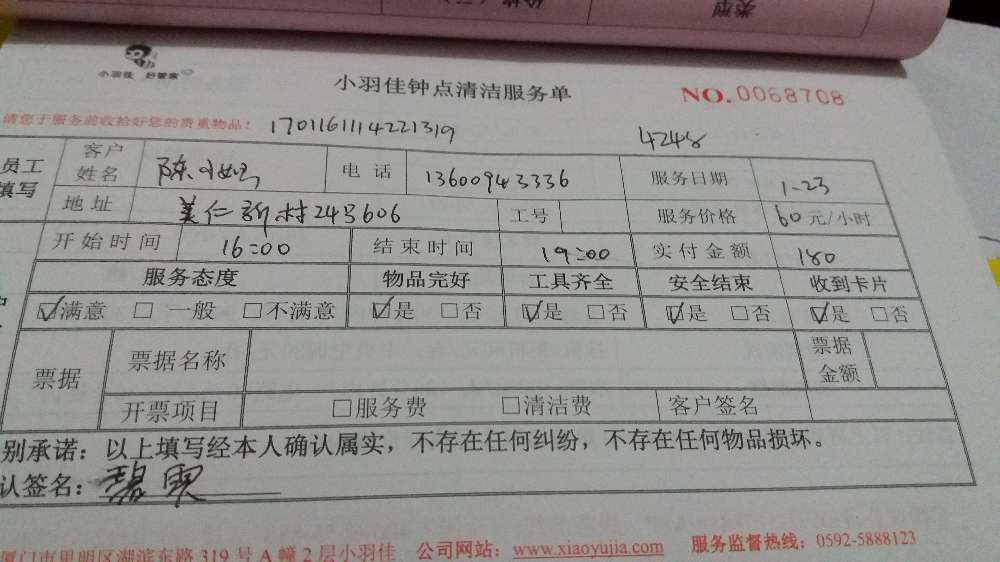 类型
小羽佳 好管家
小羽佳钟点清洁服务单 NO.0068708
请您于服务前收拾好您的贵重物品! 1701161114221319 4248
员工填写 客户姓名 陈 电话 13600943336 服务日期 1-23
地址 美仁新村243606 工号 服务价格 60元/小时
开始时间 16:00 结束时间 19:00 实付金额 180
服务态度 物品完好 工具齐全 安全结束 收到卡片
☑满意 □一般 □不满意 ☑是 □否 ☑是 □否 ☑是 □否 ☑是 □否
票据 票据名称 票据金额
开票项目 □服务费 □清洁费 客户签名
别承诺：以上填写经本人确认属实，不存在任何纠纷，不存在任何物品损坏。
认签名：
厦门市思明区湖滨东路319号A幢2层小羽佳 公司网站：www.xiaoyujia.com 服务监督热线：0592-5888123